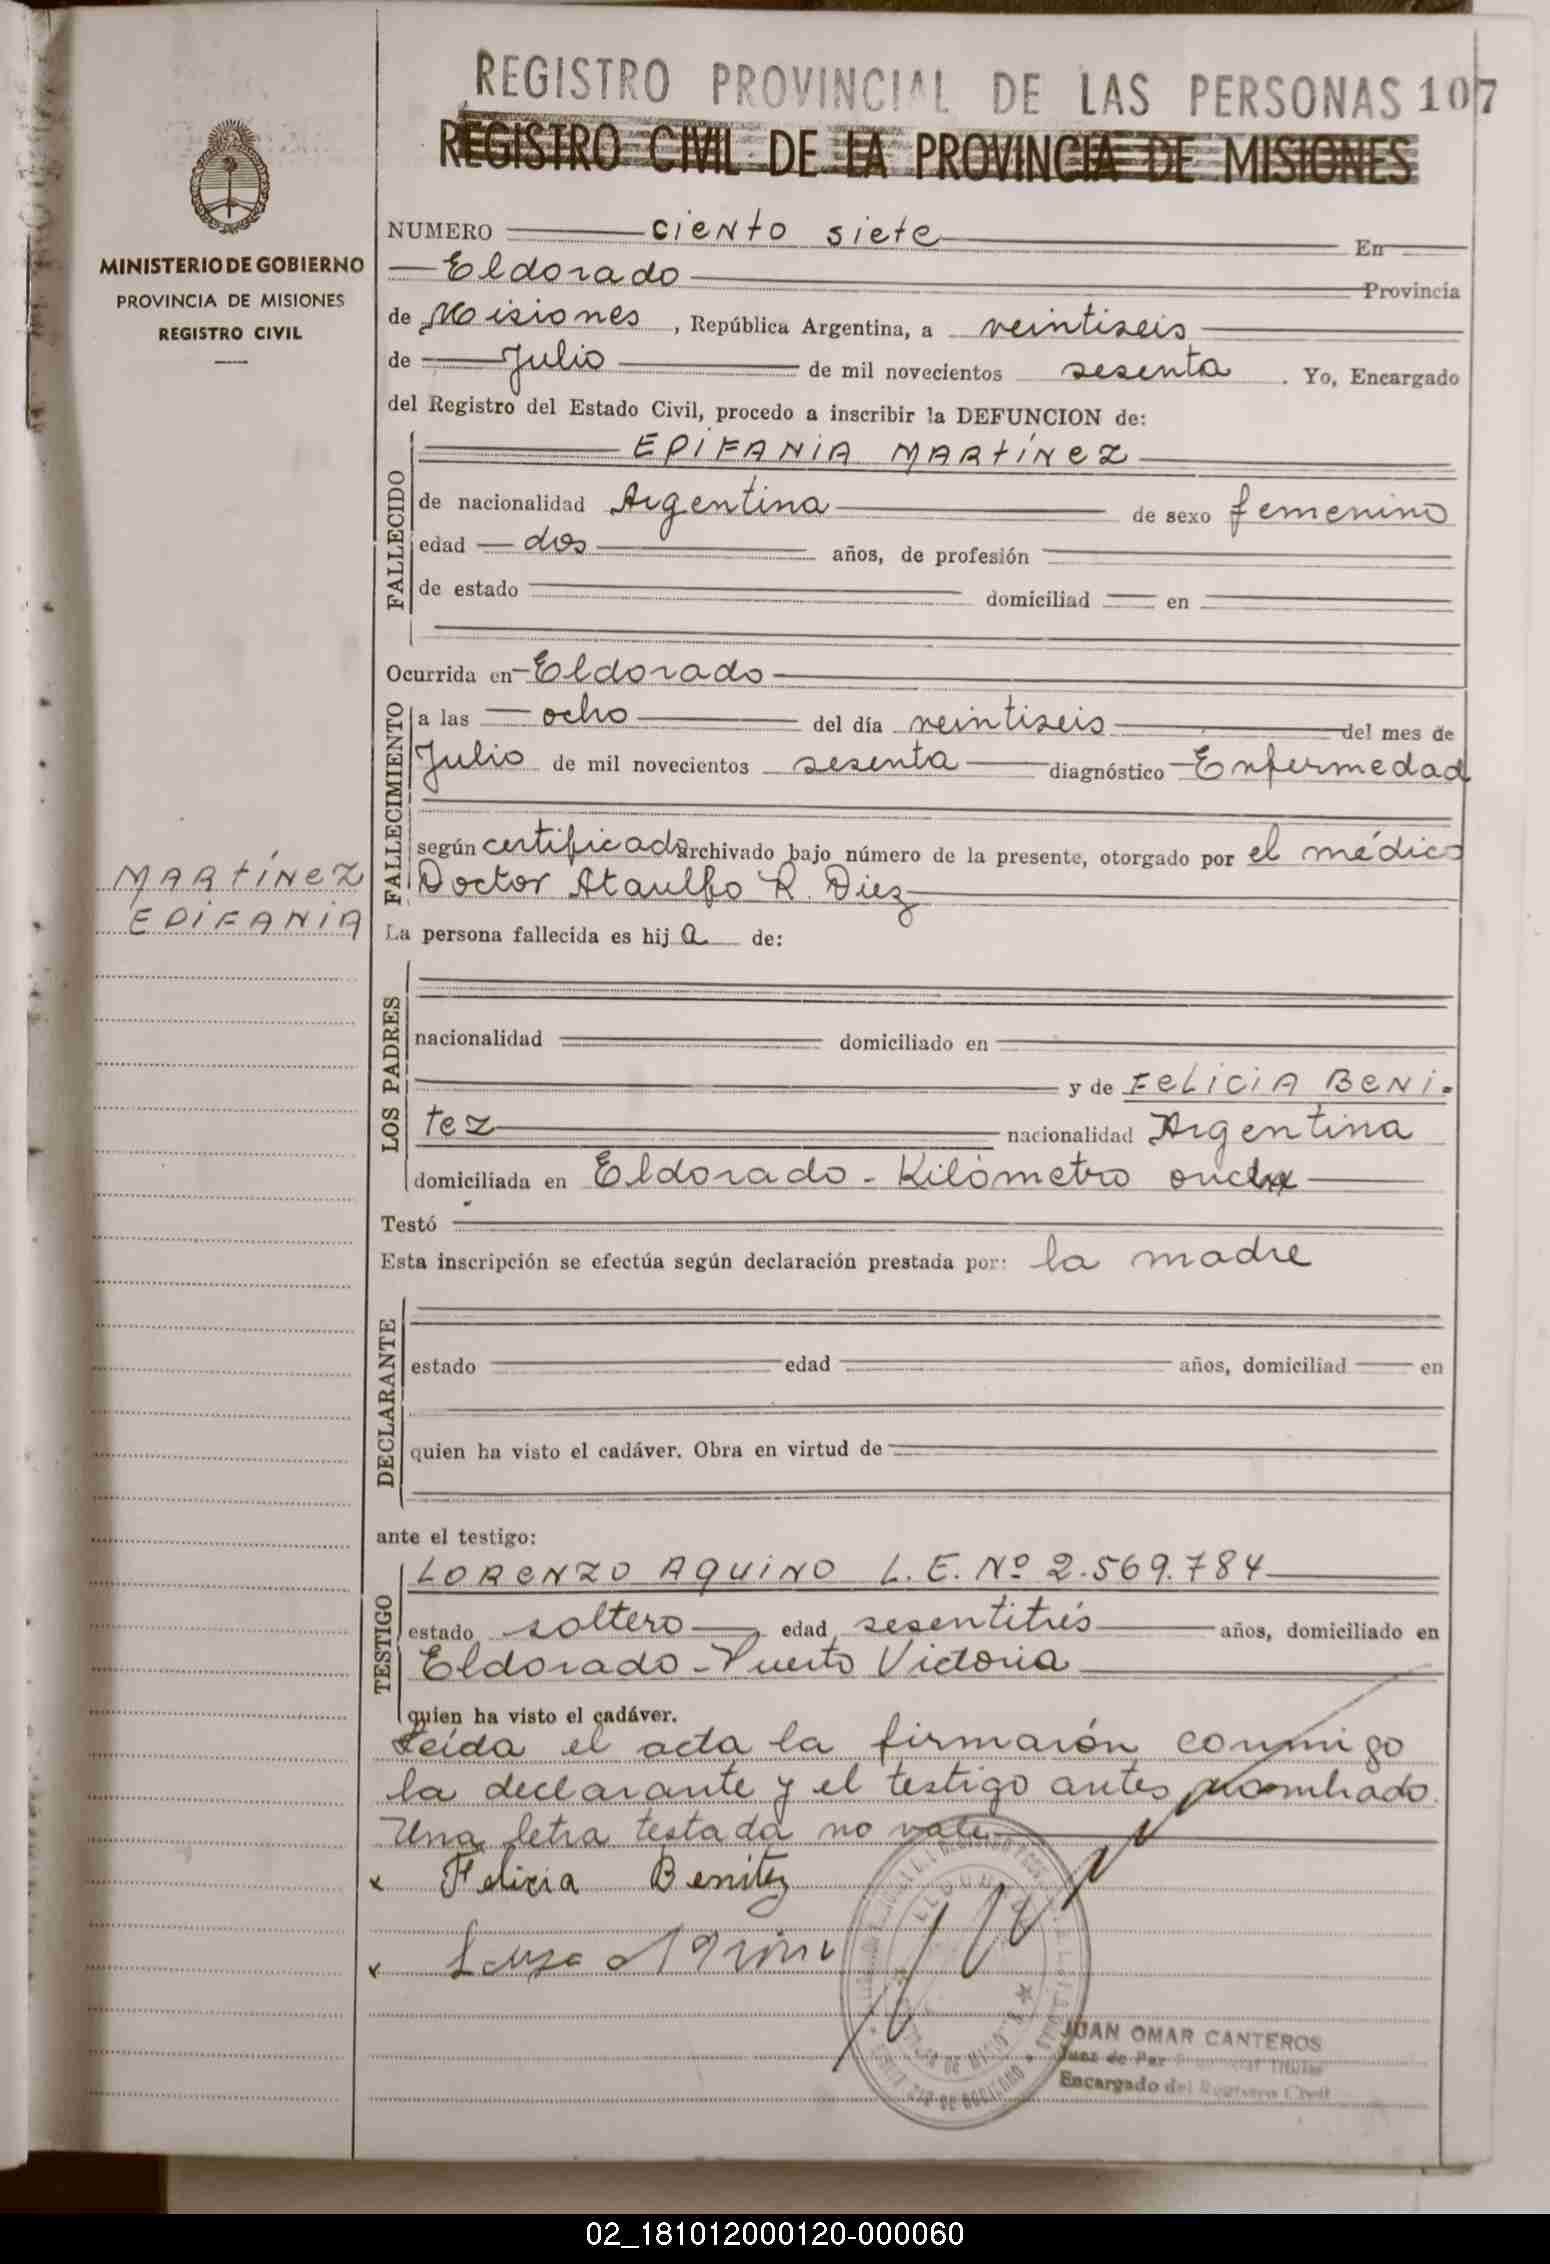 REGISTRO PROVINCIAL DE LAS PERSONAS 107
REGISTRO CIVIL DE LA PROVINCIA DE MISIONES
MINISTERIO DE GOBIERNO
PROVINCIA DE MISIONES
REGISTRO CIVIL
NUMERO ciento siete En
Eldorado Provincia
de Misiones, República Argentina, a veintiseis
de Julio de mil novecientos sesenta. Yo, Encargado
del Registro del Estado Civil, procedo a inscribir la DEFUNCION de:
FALLECIDO
EPIFANIA MARTÍNEZ
de nacionalidad Argentina de sexo femenino
edad dos años, de profesión
de estado domiciliad en
Ocurrida en Eldorado
FALLECIMIENTO
a las ocho del día veintiseis del mes de
Julio de mil novecientos sesenta diagnóstico Enfermedad
según certificado archivado bajo número de la presente, otorgado por el médico
Doctor Ataulfo R. Diez
MARTÍNEZ
EPIFANIA
La persona fallecida es hija de:
LOS PADRES
nacionalidad domiciliado en
y de FELICIA BENI-
tez nacionalidad Argentina
domiciliada en Eldorado - Kilómetro
Testó
Esta inscripción se efectúa según declaración prestada por: la madre
DECLARANTE
estado edad años, domiciliad en
quien ha visto el cadáver. Obra en virtud de
ante el testigo:
TESTIGO
LORENZO AQUINO L.E. Nº 2.569.784
estado soltero edad sesentitrés años, domiciliado en
Eldorado - Puerto Victoria
quien ha visto el cadáver.
Leída el acta la firmarón conmigo
la declarante y el testigo antes nombrado.
Una letra testada no vale
x Felicia Benitez
x
JUAN OMAR CANTEROS
Juez de Paz Titular
Encargado del Registro Civil
02_181012000120-000060